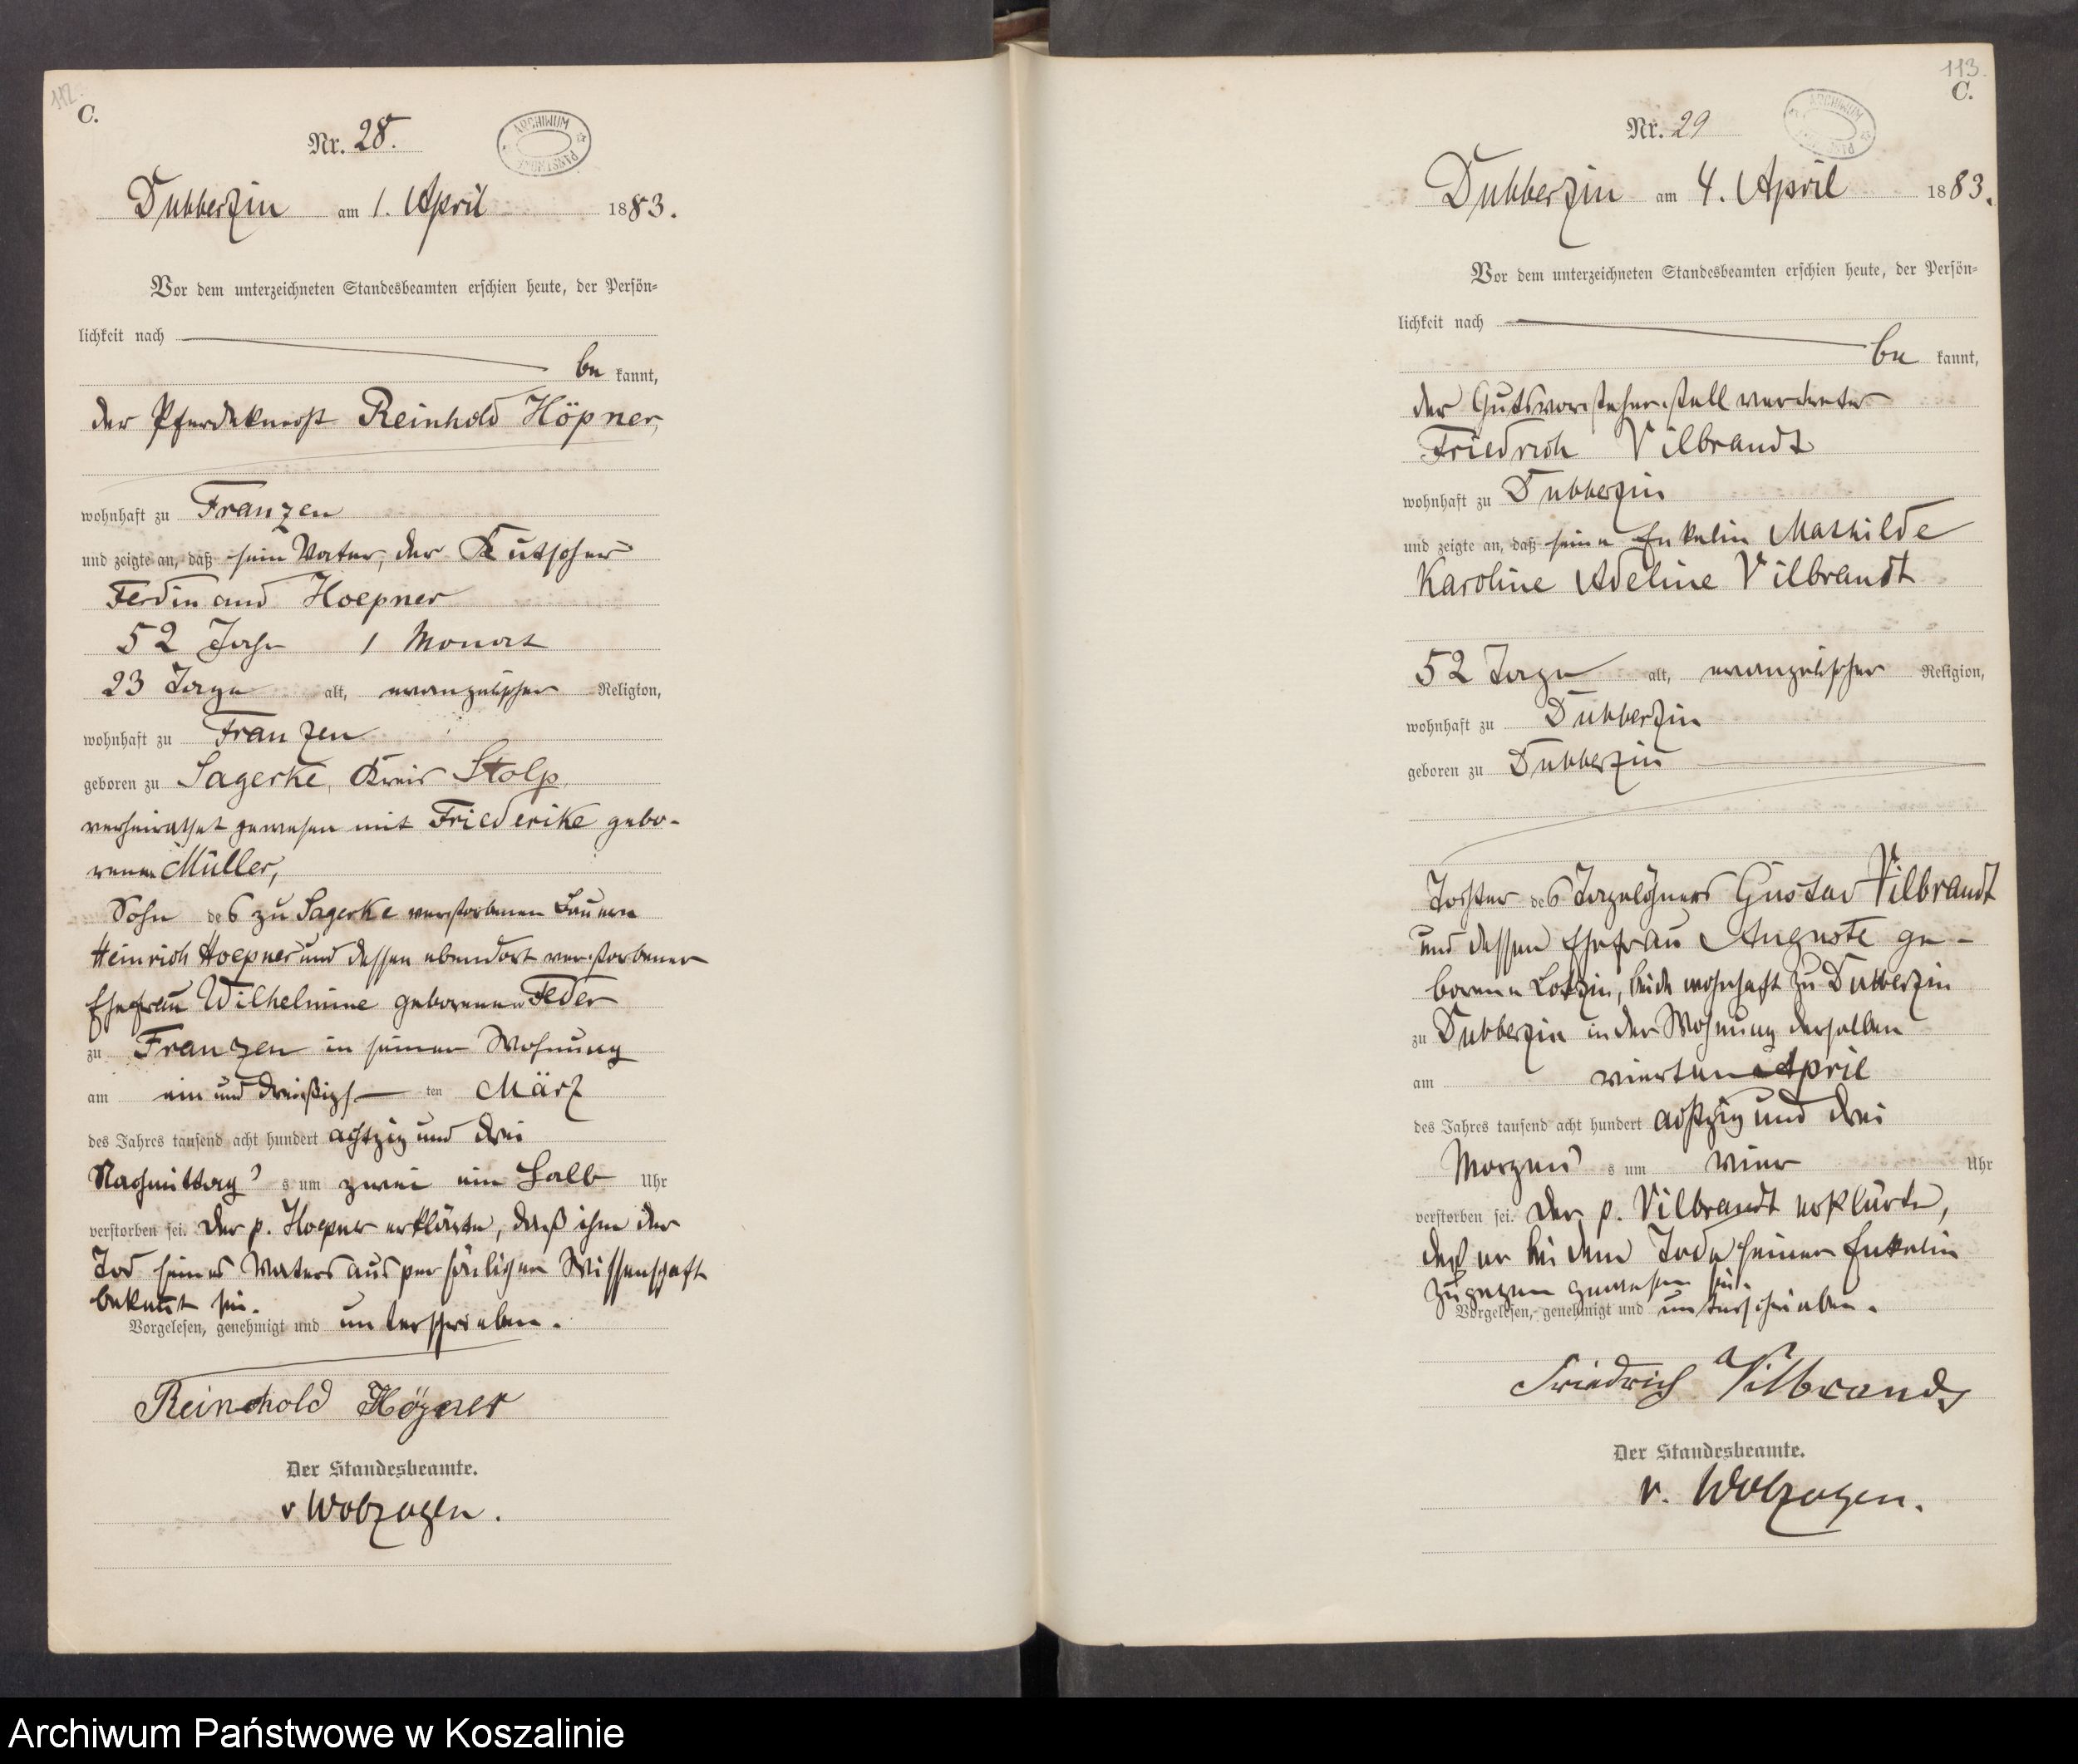 112.
C.
Nr. 28.
ARCHIWUM PAŃSTWOWE
Dubberzin am 1. April 1883.
Vor dem unterzeichneten Standesbeamten erschien heute, der Persön=
lichkeit nach
be kannt,
der Pferdeknecht Reinhold Höpner,
wohnhaft zu Franzen
und zeigte an, daß sein Vater, der Kutscher
Ferdinand Hoepner
52 Jahr 1 Monat
23 Tage alt, evangelischer Religion,
wohnhaft zu Franzen
geboren zu Sagerke, Kreis Stolp,
verheirathet gewesen mit Friederike gebo-
renen Müller,
Sohn des zu Sagerke verstorbenen Bauern
Heinrich Hoepner und dessen ebendort verstorbener
Ehefrau Wilhelmine geborenen Feder
zu Franzen in seiner Wohnung
am ein und dreißigs ten März
des Jahres tausend acht hundert achtzig und drei
Nachmittag s um zwei ein halb Uhr
verstorben sei. Der p. Hoepner erklärte, daß ihm der
Tod seines Vaters aus persönlicher Wissenschaft
bekannt sei.
Vorgelesen, genehmigt und unterschrieben.
Reinhold Höpner
Der Standesbeamte.
v Wolzogen.
113.
C.
Nr. 29
ARCHIWUM PAŃSTWOWE
Dubberzin am 4. April 1883.
Vor dem unterzeichneten Standesbeamten erschien heute, der Persön=
lichkeit nach
be kannt,
der Gutsvorsteherstellvertreter
Friedrich Vilbrandt
wohnhaft zu Dubberzin
und zeigte an, daß seine Enkelin Mathilde
Karoline Adeline Vilbrandt
52 Tage alt, evangelischer Religion,
wohnhaft zu Dubberzin
geboren zu Dubberzin
Tochter des Tagelöhners Gustav Vilbrandt
und dessen Ehefrau Auguste ge-
borene Lotzin, beide wohnhaft zu Dubberzin
zu Dubberzin in der Wohnung derselben
am vierten April
des Jahres tausend acht hundert achtzig und drei
Morgens s um vier Uhr
verstorben sei. Der p. Vilbrandt erklärte,
daß er bei dem Tode seiner Enkelin
zugegen gewesen sei.
Vorgelesen, genehmigt und unterschrieben.
Friedrich Vilbrandt
Der Standesbeamte.
v. Wolzogen.
Archiwum Państwowe w Koszalinie